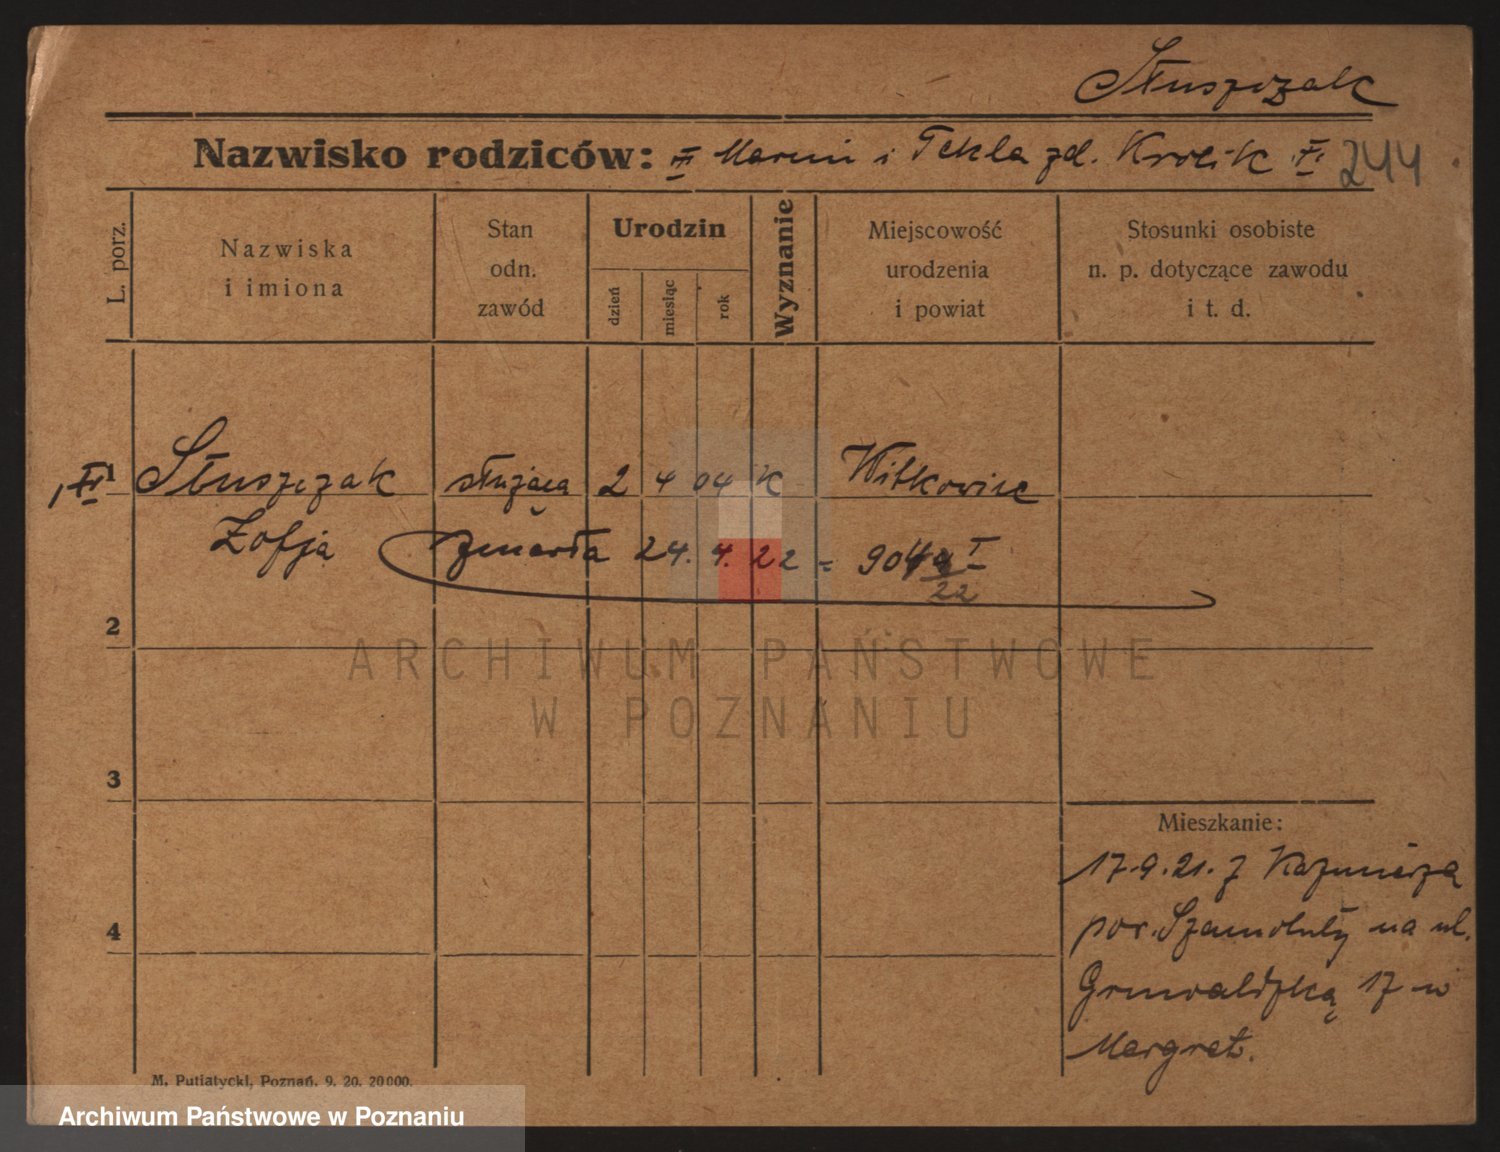 Stuszczak
Nazwisko rodziców: Marcin i Tekla zd. Królik 244
L. porz.
Nazwiska
i imiona
Stan
odn.
zawód
Urodzin
dzień
miesiąc
rok
Wyznanie
Miejscowość
urodzenia
i powiat
Stosunki osobiste
n. p. dotyczące zawodu
i t. d.
1 Stuszczak służąca 2 4 04 K Witkowice
Zofja zmarła 24. 4. 22 =
22
2
3
4
Mieszkanie:
17.9.21. z Kaźmierza
pow. Szamotuły na ul.
Grunwaldzką 17 w
Margret.
M. Putiatycki, Poznań. 9. 20. 20000.
ARCHIWUM PAŃSTWOWE
W POZNANIU
Archiwum Państwowe w Poznaniu